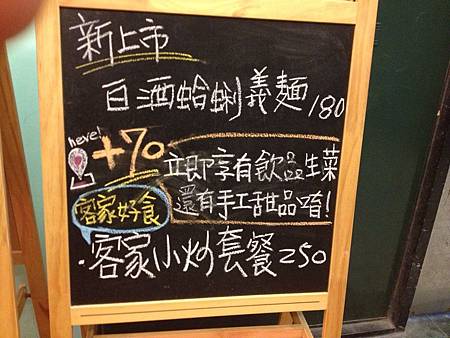 新上市
白酒蛤蜊義麵 180
here!
+70
立即享有飲品生菜
還有手工甜品唷!
客家好食
·客家小炒套餐 250